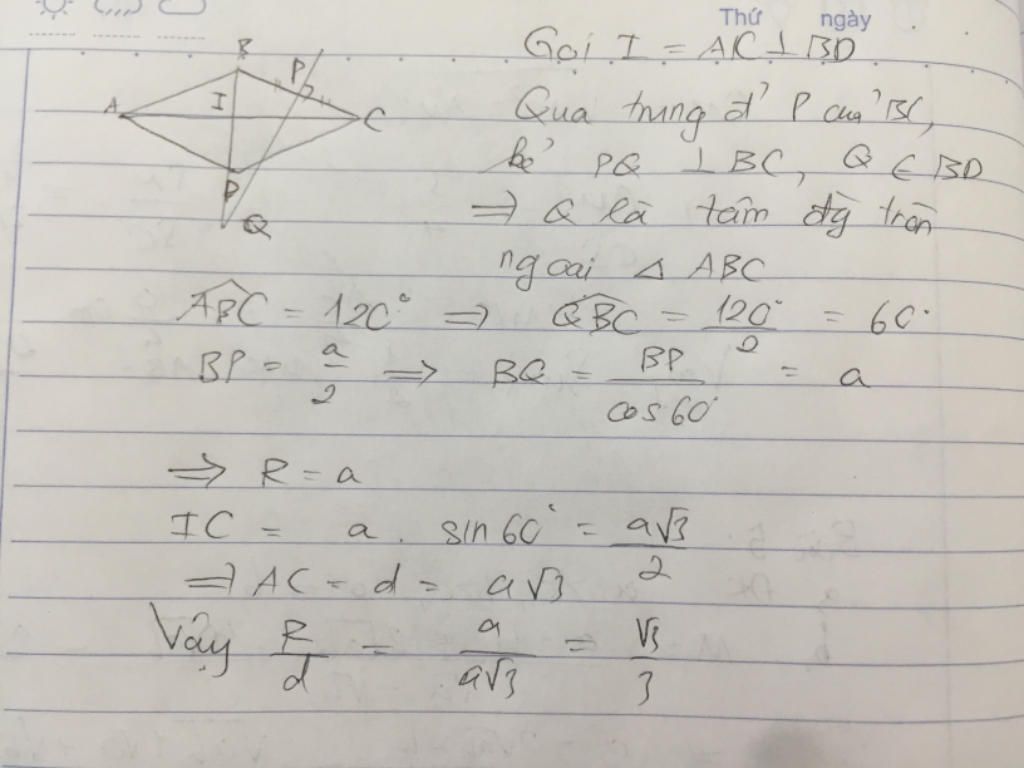 Thứ ngày
Gọi I = AC ⊥ BD
Qua trung đ' P của BC,
kẻ PQ ⊥ BC, Q ∈ BD
⇒ Q là tâm đg tròn
ngoai △ ABC
ABC = 120° ⇒ QBC = 120°/2 = 60°
BP = a/2 ⇒ BQ = BP/cos60° = a
⇒ R = a
IC = a. sin60° = a√3/2
⇒ AC = d = a√3
Vậy R/d = a/a√3 = √3/3
B
P
A
I
C
D
Q